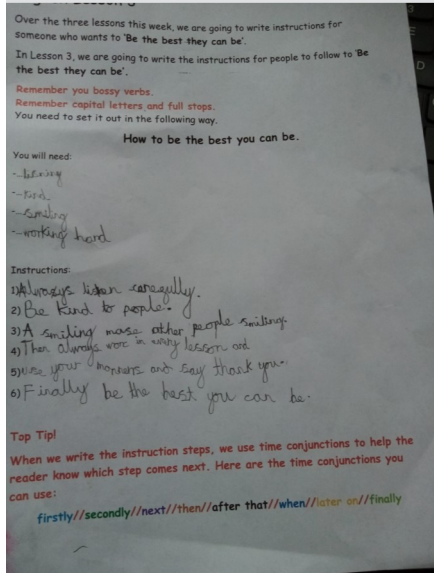 Over the three lessons this week, we are going to write instructions for
someone who wants to 'Be the best they can be'.
In Lesson 3, we are going to write the instructions for people to follow to 'Be
the best they can be'.
Remember you bossy verbs.
Remember capital letters and full stops.
You need to set it out in the following way.
How to be the best you can be.
You will need:
-
- kind
- smiling
- working hard
Instructions:
1) Always listen
2) Be kind to people.
3) A smiling mase other people smiling.
4) Then always worc in evry lesson and
5) use your manners and say thank you.
6) Finally be the best you can be.
Top Tip!
When we write the instruction steps, we use time conjunctions to help the
reader know which step comes next. Here are the time conjunctions you
can use:
firstly//secondly//next//then//after that//when//later on//finally